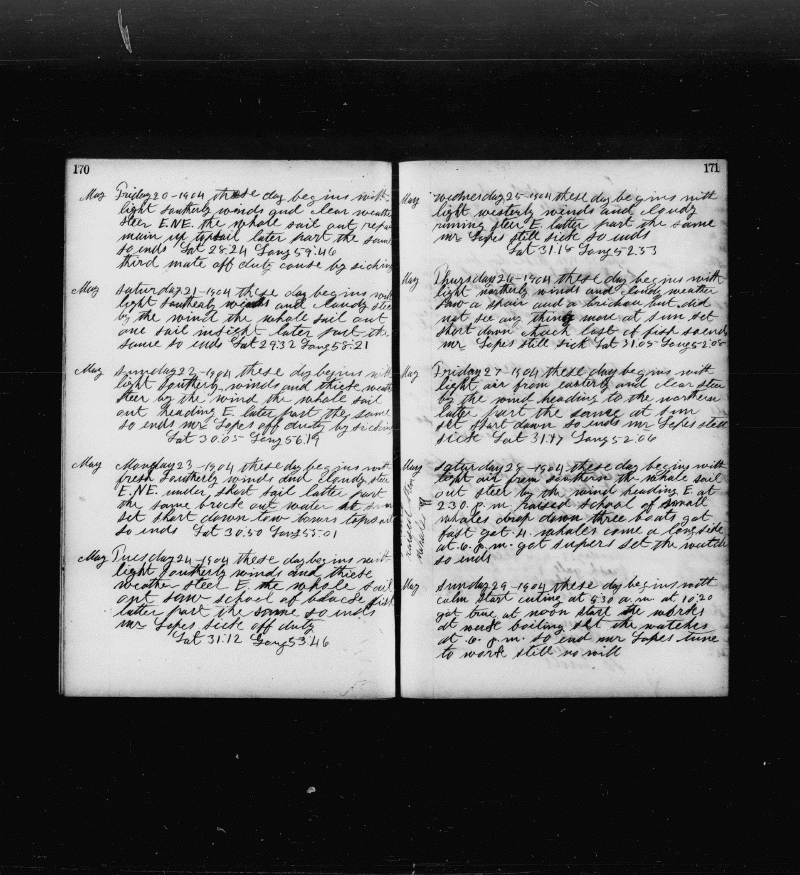 170
May Friday 20-1904 these day begins with
light Southerly winds and clear weather
steer E.NE. the whole sail out
main up later part the same
so ends Lat 28.24 Long 59.46
third mate off duty cause by
May Saturday 21-1904 these day begins with
light Southerly winds and cloudy steer
by the wind the whole sail out
one sail insight later part the
same so ends Lat 29.32 Long 58.21
May Sunday 22-1904 these day begins with
light Southerly winds and thick
steer by the wind the whole sail
out heading E. later part the same
so ends mr Lopes off duty by
Lat 30.05 Long 56.19
May Monday 23-1904 these day begins with
fresh Southerly winds and cloudy steer
E.NE. under short sail latter part
the same brock out water at sun
set short down
so ends Lat 30.50 Long 55.01
May Tuesday 24-1904 these day begins with
light Southerly winds and thick
weather steer E. the whole sail
out saw school of black fish
latter part the same so ends
mr Lopes sick off duty
Lat 31.12 Long 53.46
171
May wednesday 25-1904 these day begins with
light westerly winds and cloudy
steer E. latter part the same
mr Lopes still sick so ends
Lat 31.18 Long 52.53
May Thursday 26-1904 these day begins with
light northerly winds and cloudy weather
saw a and a but did
not see any thing more at sun set
short down so ends
mr Lopes still sick Lat 31.05 Long 52.08
May Friday 27 1904 these day begins with
light air from easterly and clear steer
by the wind heading to the
later part the same at sun
set short down so ends mr Lopes still
sick Lat 31.17 Long 52.06
May Saturday 28-1904 these day begins with
light air from southern the whole sail
out steer by the wind heading E. at
2.30 p.m. raised school of small
whales drop down three boats got
fast got 4 whales come a long side
at 6. p.m. got supers set the watch
so ends
May Sunday 29-1904 these day begins with
calm start cuting at 5.30 a.m. at 10.20
got true at noon start the works
at work boiling set the watches
at 6. p.m. so end mr Lopes
to work still no will